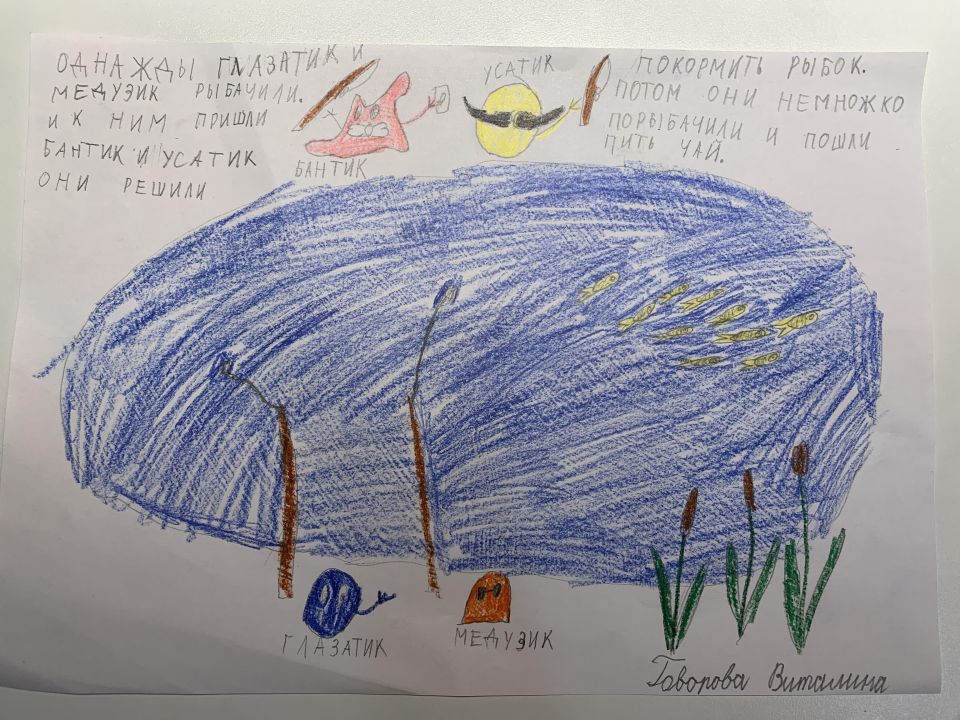 ОДНАЖДЫ ГЛАЗАТИК И
МЕДУЗИК РЫБАЧИЛИ.
И К НИМ ПРИШЛИ
БАНТИК И УСАТИК
ОНИ РЕШИЛИ
ПОКОРМИТЬ РЫБОК.
ПОТОМ ОНИ НЕМНОЖКО
ПОРЫБАЧИЛИ И ПОШЛИ
ПИТЬ ЧАЙ.
БАНТИК
УСАТИК
ГЛАЗАТИК
МЕДУЗИК
Говорова Виталина